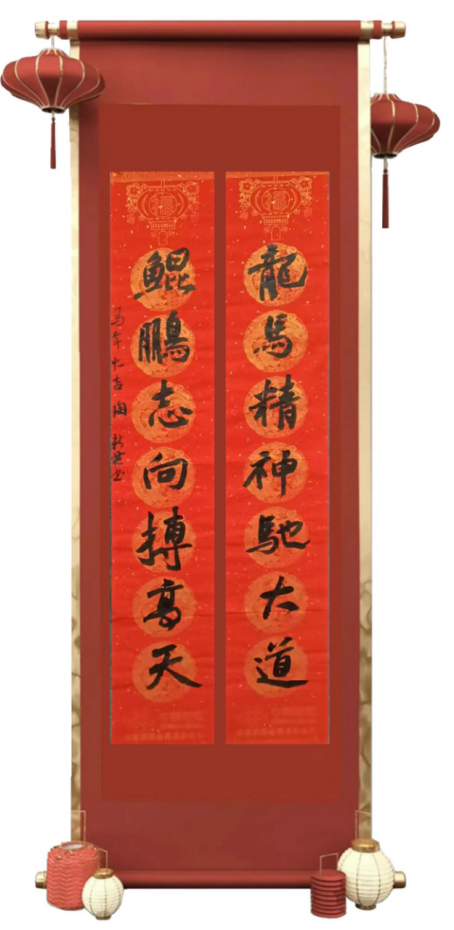 龍馬精神馳大道
鯤鵬志向搏高天
馬年大吉 陶